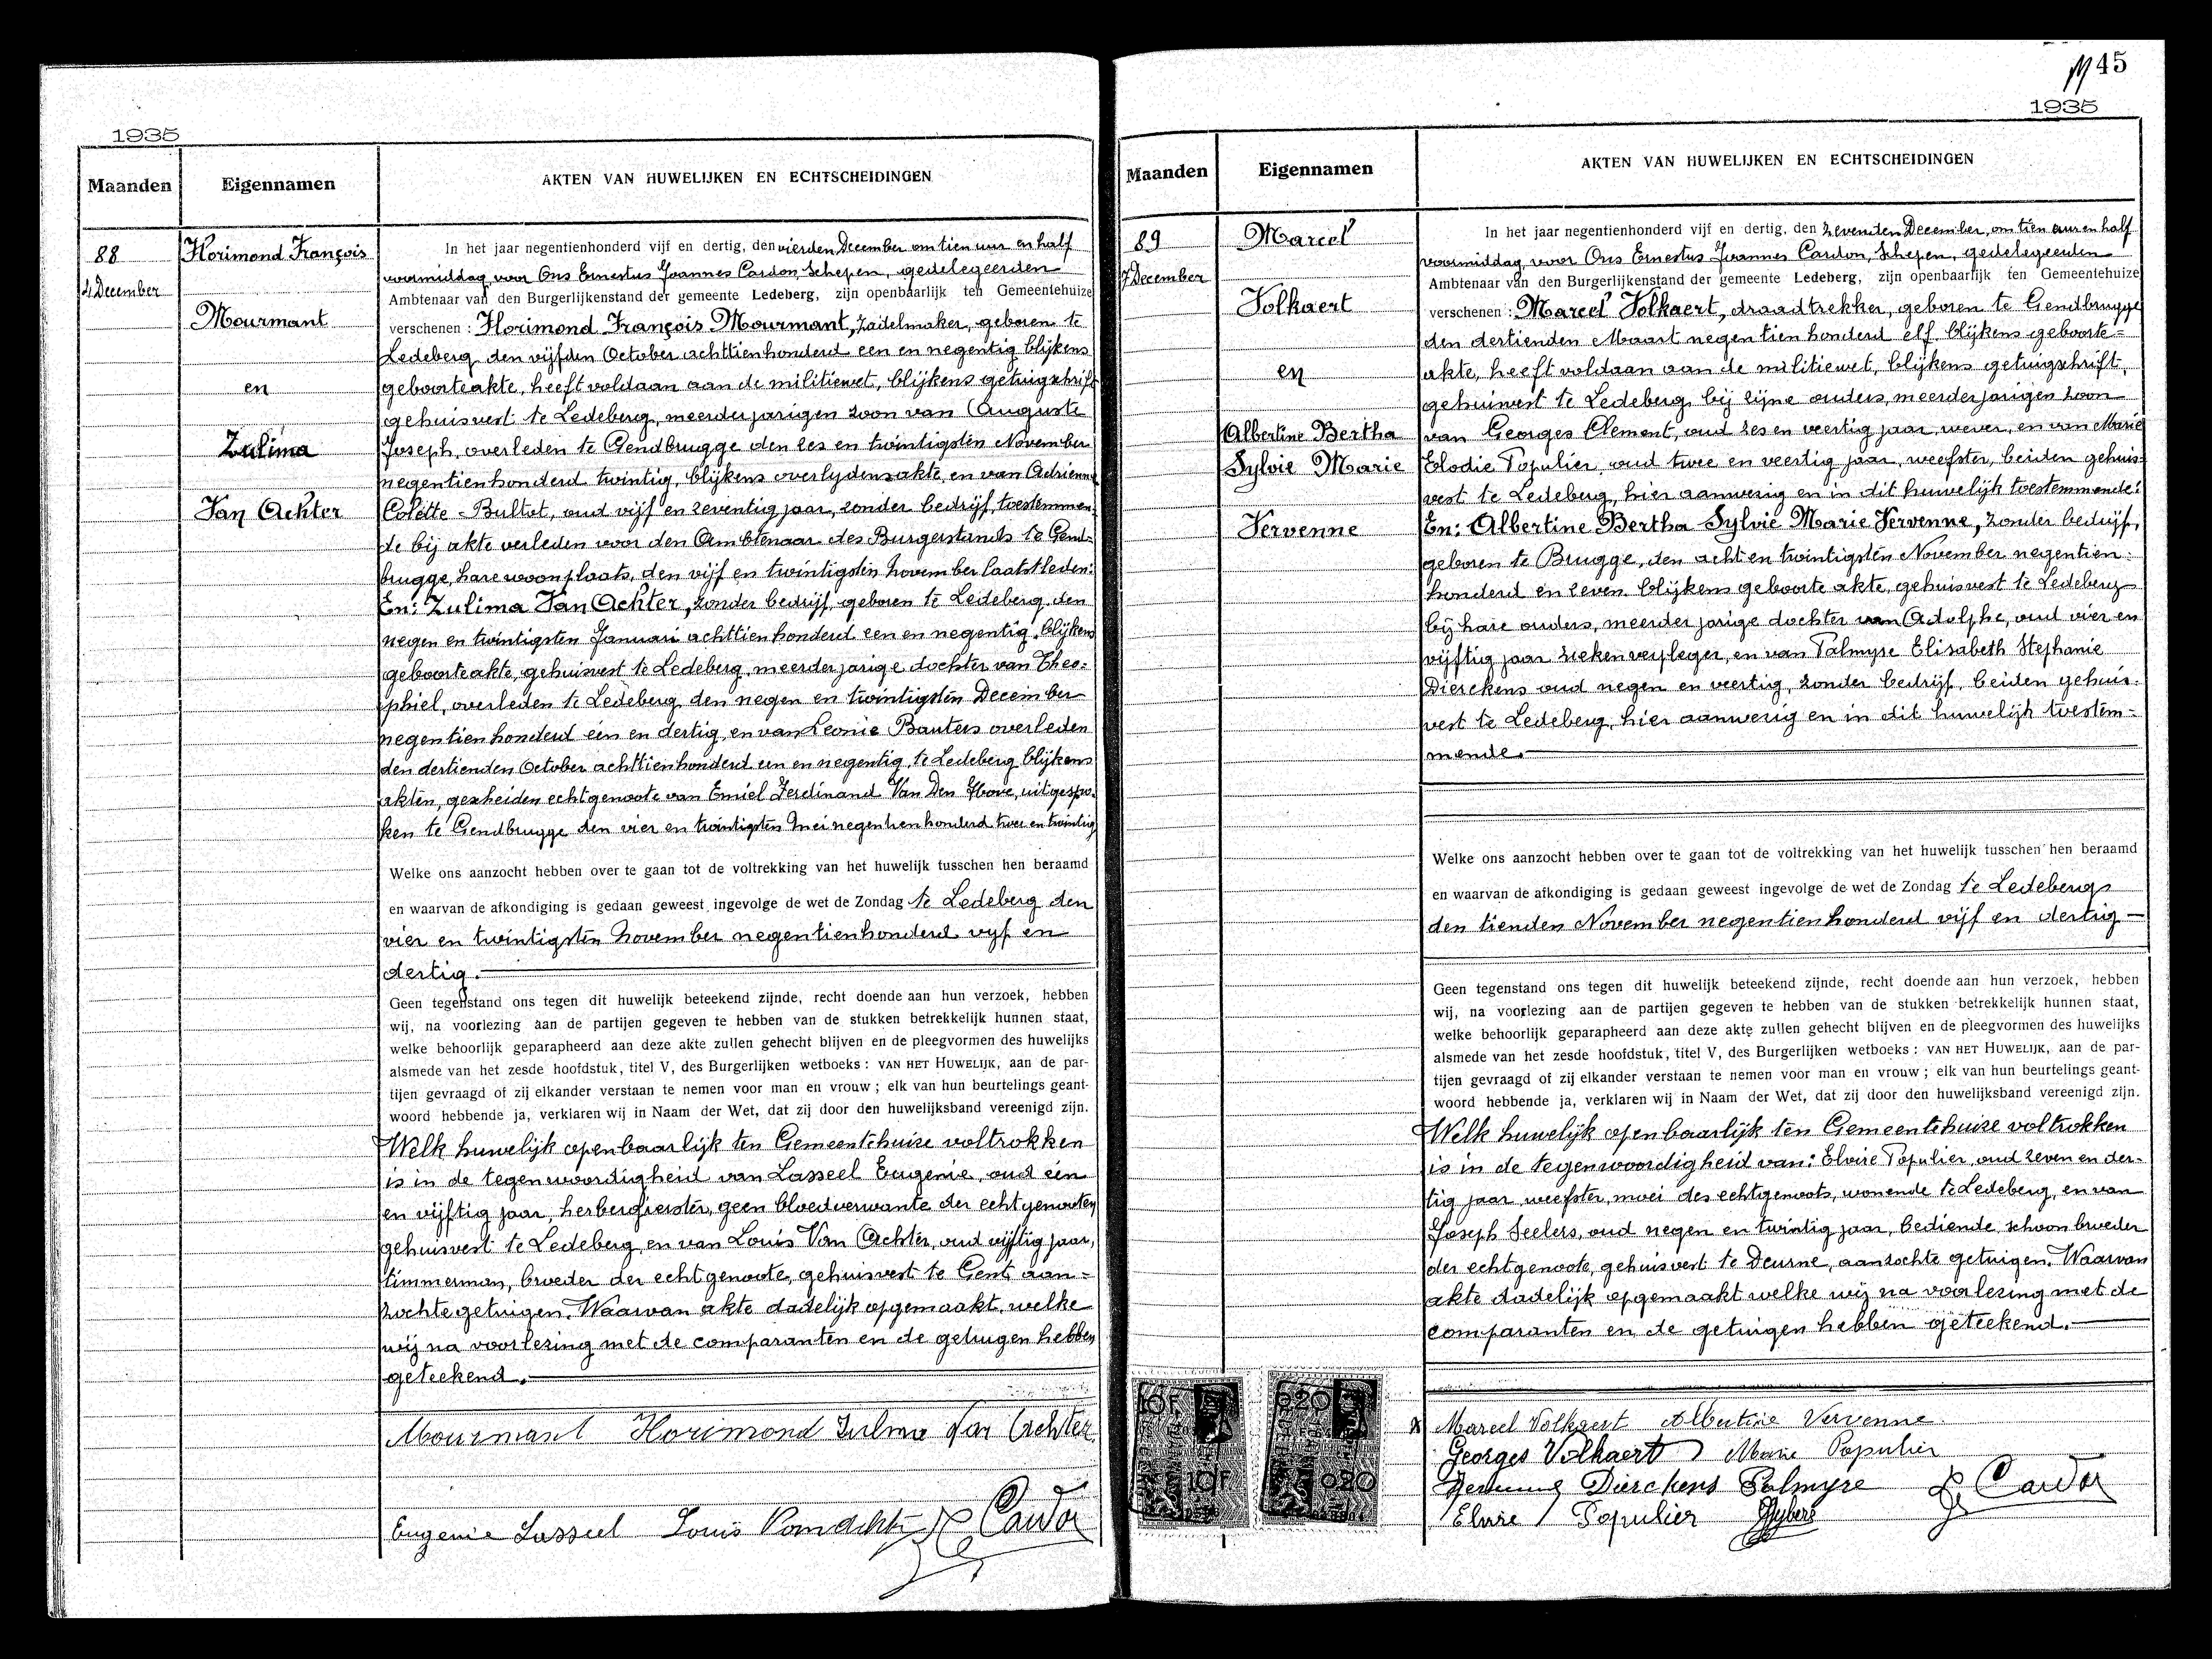 1935
Maanden
Eigennamen
AKTEN VAN HUWELIJKEN EN ECHTSCHEIDINGEN
88
4 December
Florimond François
Mourmant
en
Zulima
Van Achter
In het jaar negentienhonderd vijf en dertig, den vierden December om tien uur en half
voormiddag voor Ons Ernestus Joannes Cardon, Schepen, gedelegeerden
Ambtenaar van den Burgerlijkenstand der gemeente Ledeberg, zijn openbaarlijk ten Gemeentehuize
verschenen : Florimond François Mourmant, zadelmaker, geboren te
Ledeberg den vijfden October achttienhonderd een en negentig blijkens
geboorteakte, heeft voldaan aan de militiewet, blijkens getuigschrift
gehuisvest te Ledeberg, meerderjarigen zoon van Auguste
Joseph, overleden te Gendbrugge den zes en twintigsten November
negentienhonderd twintig, blijkens overlydensakte, en van Adrienne
Colette Bultot, oud vijf en zeventig jaar, zonder bedrijf, toestemmen-
de bij akte verleden voor den Ambtenaar des Burgerstands te Gend-
brugge, hare woonplaats, den vijf en twintigsten november laatstleden:
En: Zulima Van Achter, zonder bedrijf, geboren te Ledeberg, den
negen en twintigsten Januari achttienhonderd een en negentig, blijkens
geboorteakte, gehuisvest te Ledeberg, meerderjarige dochter van Theo-
phiel, overleden te Ledeberg den negen en twintigsten December
negentienhonderd één en dertig, en van Leonie Bauters overleden
den dertienden October achttienhonderd een en negentig, te Ledeberg blijkens
akten, gescheiden echtgenoote van Emiel Ferdinand Van Den Hove, uitgespro-
ken te Gendbrugge den vier en twintigsten Mei negentienhonderd twee en twintig
Welke ons aanzocht hebben over te gaan tot de voltrekking van het huwelijk tusschen hen beraamd
en waarvan de afkondiging is gedaan geweest ingevolge de wet de Zondag te Ledeberg den
vier en twintigsten november negentienhonderd vyf en
dertig.
Geen tegenstand ons tegen dit huwelijk beteekend zijnde, recht doende aan hun verzoek, hebben
wij, na voorlezing aan de partijen gegeven te hebben van de stukken betrekkelijk hunnen staat,
welke behoorlijk geparapheerd aan deze akte zullen gehecht blijven en de pleegvormen des huwelijks
alsmede van het zesde hoofdstuk, titel V, des Burgerlijken wetboeks : VAN HET HUWELIJK, aan de par-
tijen gevraagd of zij elkander verstaan te nemen voor man en vrouw ; elk van hun beurtelings geant-
woord hebbende ja, verklaren wij in Naam der Wet, dat zij door den huwelijksband vereenigd zijn.
Welk huwelijk openbaarlijk ten Gemeentehuize voltrokken
is in de tegenwoordigheid van Lasseel Eugenie, oud één
en vijftig jaar, herbergierster, geen bloedverwante der echtgenooten
gehuisvest te Ledeberg, en van Louis Van Achter, oud vijftig jaar,
timmerman, broeder der echtgenoote, gehuisvest te Gent, aan-
zochte getuigen. Waarvan akte dadelijk opgemaakt, welke
wij na voorlezing met de comparanten en de getuigen hebben
geteekend.
Mourmant Florimond Zulma Van Achter
Eugenie Lasseel Louis Van Achter E. Cardon
45
1935
Maanden
Eigennamen
AKTEN VAN HUWELIJKEN EN ECHTSCHEIDINGEN
89
7 December
Marcel
Volkaert
en
Albertine Bertha
Sylvie Marie
Vervenne
In het jaar negentienhonderd vijf en dertig, den zevenden December, om tien uur en half
voormiddag voor Ons Ernestus Joannes Cardon, Schepen, gedelegeerden
Ambtenaar van den Burgerlijkenstand der gemeente Ledeberg, zijn openbaarlijk ten Gemeentehuize
verschenen : Marcel Volkaert, draadtrekker, geboren te Gendbrugge
den dertienden Maart negentienhonderd elf blijkens geboorte-
akte, heeft voldaan aan de militiewet, blijkens getuigschrift,
gehuisvest te Ledeberg bij zijne ouders, meerderjarigen zoon
van Georges Clement, oud zes en veertig jaar, wever, en van Marie
Elodie Populier, oud twee en veertig jaar, weefster, beiden gehuis-
vest te Ledeberg, hier aanwezig en in dit huwelijk toestemmende:
En: Albertine Bertha Sylvie Marie Vervenne, zonder bedrijf,
geboren te Brugge, den acht en twintigsten November negentien-
honderd en zeven blijkens geboorte akte, gehuisvest te Ledeberg
bij hare ouders, meerderjarige dochter van Adolphe, oud vier en
vijftig jaar ziekenverpleger, en van Palmyre Elisabeth Stephanie
Dierckens oud negen en veertig, zonder bedrijf, beiden gehuis-
vest te Ledeberg, hier aanwezig en in dit huwelijk toestem-
mende.
Welke ons aanzocht hebben over te gaan tot de voltrekking van het huwelijk tusschen hen beraamd
en waarvan de afkondiging is gedaan geweest ingevolge de wet de Zondag te Ledeberg
den tienden November negentienhonderd vijf en dertig
Geen tegenstand ons tegen dit huwelijk beteekend zijnde, recht doende aan hun verzoek, hebben
wij, na voorlezing aan de partijen gegeven te hebben van de stukken betrekkelijk hunnen staat,
welke behoorlijk geparapheerd aan deze akte zullen gehecht blijven en de pleegvormen des huwelijks
alsmede van het zesde hoofdstuk, titel V, des Burgerlijken wetboeks : VAN HET HUWELIJK, aan de par-
tijen gevraagd of zij elkander verstaan te nemen voor man en vrouw ; elk van hun beurtelings geant-
woord hebbende ja, verklaren wij in Naam der Wet, dat zij door den huwelijksband vereenigd zijn.
Welk huwelijk openbaarlijk ten Gemeentehuize voltrokken
is in de tegenwoordigheid van: Elvire Populier, oud zeven en der-
tig jaar weefster, moei des echtgenoots, wonende te Ledeberg, en van
Joseph Seelers, oud negen en twintig jaar, bediende, schoonbroeder
der echtgenoote, gehuisvest te Deurne, aanzochte getuigen. Waarvan
akte dadelijk opgemaakt welke wij na voorlezing met de
comparanten en de getuigen hebben geteekend.
10F
10F
020
020
Marcel Volkaert Albertine Vervenne
Georges Volkaert Marie Populier
Dierckens Palmyre E. Cardon
Elvire Populier